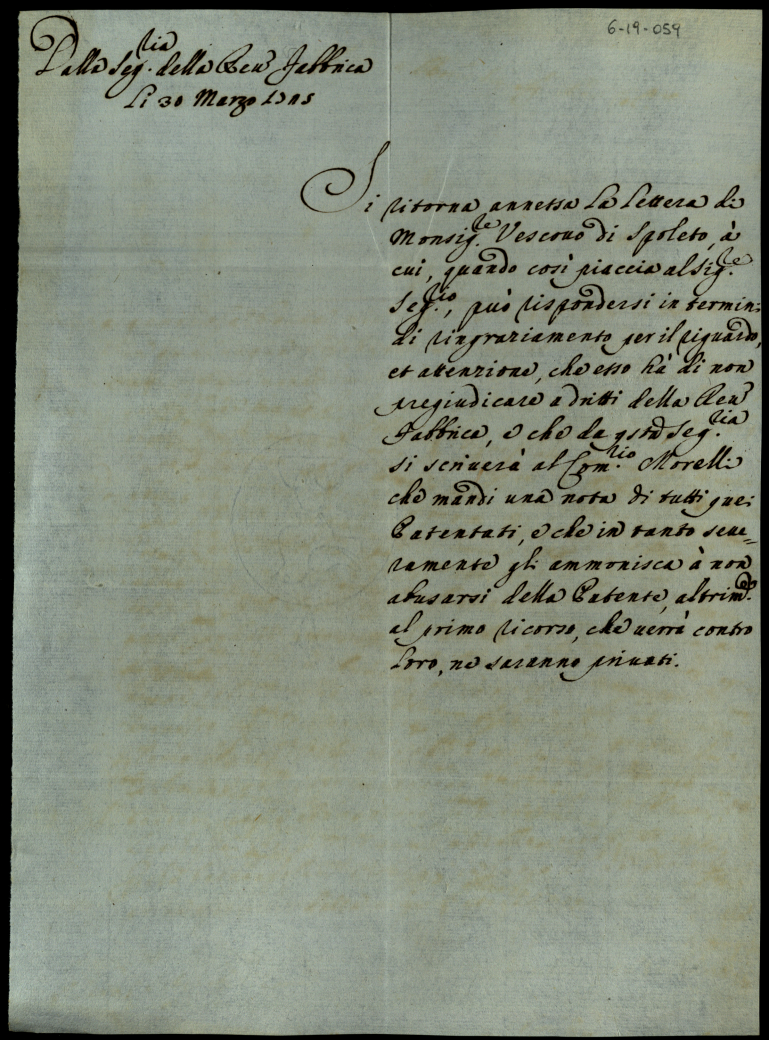 6-19-059
Dalla Seg.ria della Reu.
Fabbrica
Li 30 Marzo
Si ritorna annessa la lettera di
Monsig.re Vescouo di Spoleto, à
cui, quando così piaccia al Sig.re
Seg.rio, può rispondersi in termini
di ringraziamento per il riguardo,
et attenzione, che esso hà di non
pregiudicare a dritti della Reu.
Fabbrica, e che da qsta Seg.ria
si scriuerà al Com.rio Morelli
che mandi una nota di tutti quei
Patentati, e che in tanto seue=
ramente gli ammonisca à non
abusarsi della Patente, altrim.
al primo ricorso, che uerrà contro
Loro, ne saranno priuati.